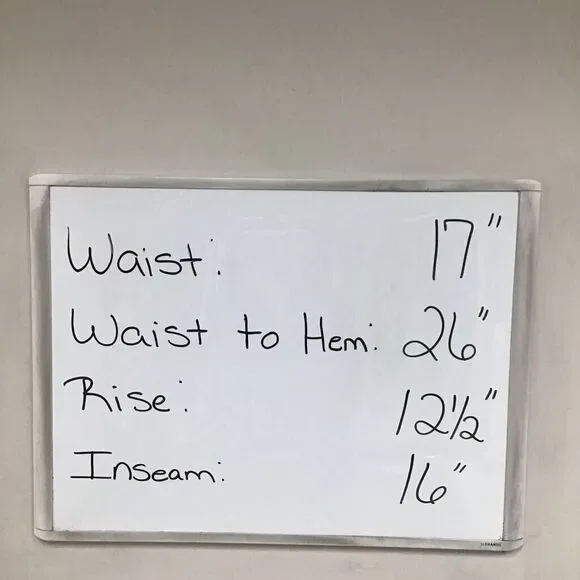 Waist: 17"
Waist to Hem: 26"
Rise: 12½"
Inseam: 16"